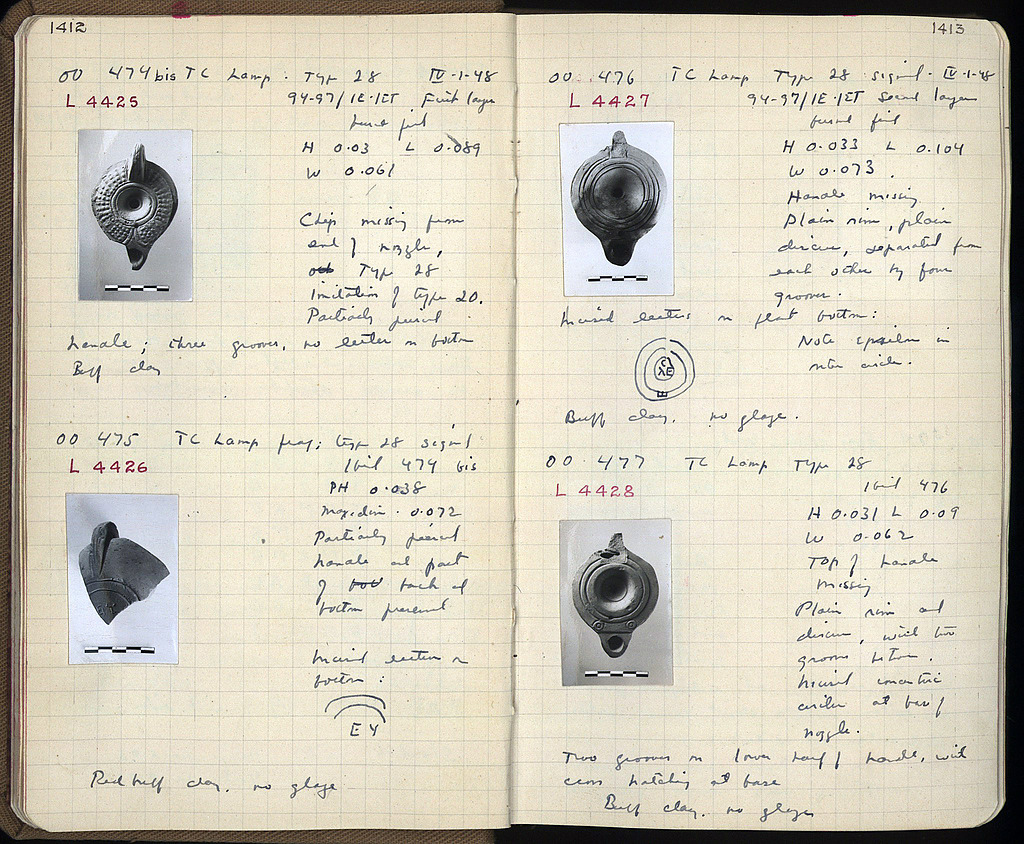 1412
OO 474 bis TC Lamp. Type 28 IV-1-48
L 4425
94-97/ΙΕ-ΙΣΤ First layer
burnt fill
H 0.03 L 0.089
W 0.061
Chip missing from
end of nozzle,
Type 28
Imitation of type 20.
Partially pierced
handle; three grooves, no letter on bottom
Buff clay
OO 475 TC Lamp frag; type 28 signed
L 4426
Ibid 474 bis
PH 0.038
Max. dim. 0.072
Partially pierced
handle and part
of back and
bottom preserved
Incised letters on
bottom:
E Y
Red buff clay, no glaze
1413
OO 476 TC Lamp Type 28 signed. IV-1-48
L 4427
94-97/ΙΕ-ΙΣΤ Second layer
burnt fill
H 0.033 L 0.104
W 0.073.
Handle missing
Plain rim, plain
discus, separated from
each other by four
grooves.
Incised letters on flat bottom:
Note epsilon in
outer circle.
C
ΛE
E
Buff clay, no glaze.
OO 477 TC Lamp Type 28
L 4428
Ibid 476
H 0.031 L 0.09
W 0.062
Top of handle
missing
Plain rim and
discus, with two
grooves between.
Incised concentric
circles at base of
nozzle.
Two grooves on lower half of handle, with
cross hatching at base
Buff clay, no glaze